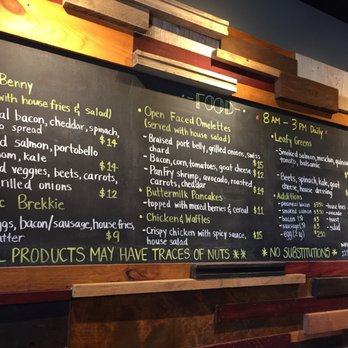 Benny
with house fries & salad)
al bacon, cheddar, spinach,
o spread $14
d salmon, portobello
oom, kale $14
d veggies, beets, carrots,
rilled onions $12
c Brekkie
ggs, bacon/sausage, house fries,
utter $9
FOOD
• Open Faced Omelettes
(served with house salad)
- Braised pork belly, grilled onions, swiss
chard $15
- Bacon, corn, tomatoes, goat cheese $12
- Pan Fry shrimp, avocado, roasted $14
Carrots, cheddar
• Buttermilk Pancakes
- topped with mixed berries & cereal $11
• Chicken & Waffles
- Crispy chicken with spicy sauce, $15
house salad
8AM - 3PM Daily
• Leafy Greens
- Smoked salmon,
tomato, balsamic
- Beets, spinach, kale, goat
cheese, house dressing
• Additions
- bacon $3
L PRODUCTS MAY HAVE TRACES OF NUTS **
* NO SUBSTITUTIONS *